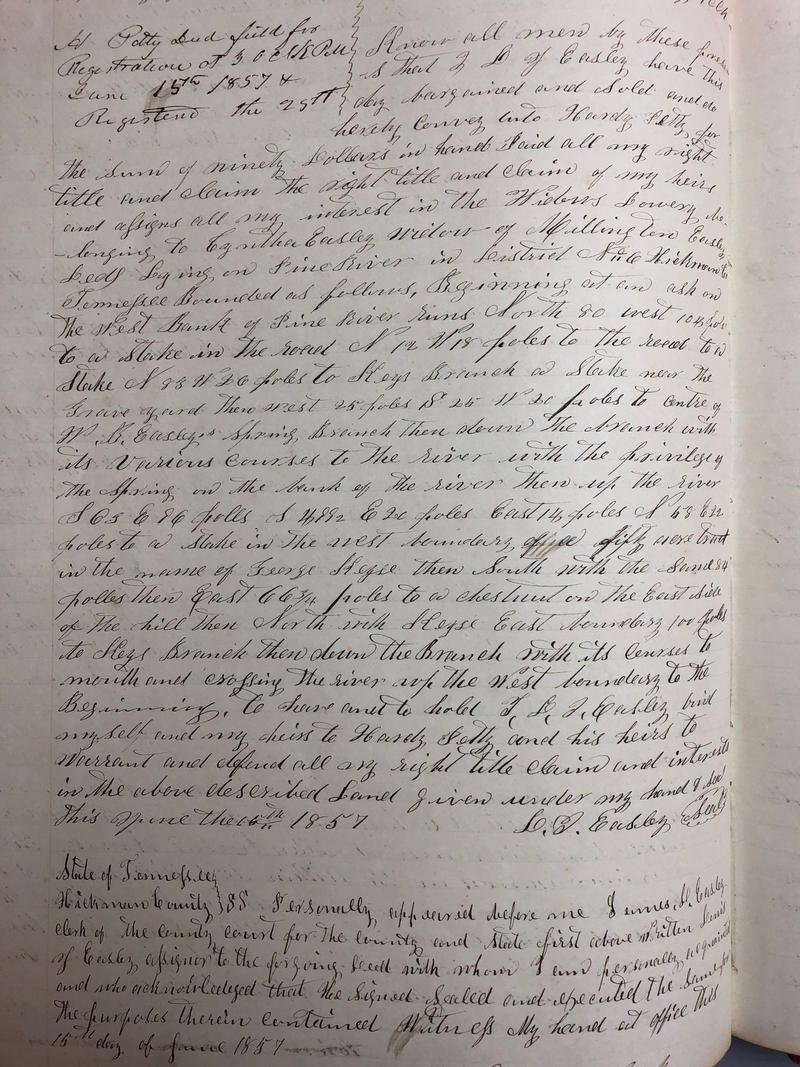 H Petty Deed filed for
Registration at 3 OClk P.M.
June 15th 1857 &
Registered the 29th
Know all men by these presen
ts that I L J Easley have this
day bargained and sold and do
hereby convey unto Hardy Petty for
the sum of ninety Dollars in hand Paid all my right
title and claim the right title and claim of my heirs
and assigns all my interest in the Widows Dowery be-
-longing to Cyntha Easley Widow of Millington Easley
Decd Lying on Pine River in District No 6 Hickman Co
Tennessee Bounded as follows, Beginning at an ash on
the West Bank of Pine River runs North 80 west 104 poles
to a Stake in the road N 12 W 18 poles to the road to a
Stake N 83 W 26 poles to Keys Branch a Stake near the
Grave yard then west 25 poles S 25 W 20 poles to centre of
W. B. Easley's Spring Branch then down the branch with
its various courses to the river with the privilege of
the Spring on the bank of the river then up the river
S 65 E 86 polls S 49 1/2 E 20 poles East 14 poles N 58 E 22
poles to a Stake in the west boundary of a fifty acre tract
in the name of George Keyse then South with the Same 84
polles then East 66 3/4 poles to a chestnut on the East Side
of the hill then North with Keyse East boundary 100 poles
to Keys Branch then down the Branch with its courses to
mouth and crossing the river up the West boundary to the
Beginning, to have and to hold I, L, J, Easley bind
myself and my heirs to Hardy Petty and his heirs to
Warrant and defend all my right title claim and interests
in the above described Land given under my hand & Seal
this June the 15th 1857 L. J. Easley Seal
State of Tennessee
Hickman County SS Personally appeared before me James D. Easley
clerk of the county court for the county and State first above written Lewis
J Easley assignor to the forgoing deed with whom I am personally acquainted
and who acknowledged that he Signed Sealed and executed the Same for
the purposes therein contained Witness My hand at office this
15th day of June 1857